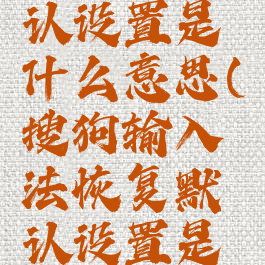 认设置是
什么意思(
搜狗输入
法恢复默
认设置是